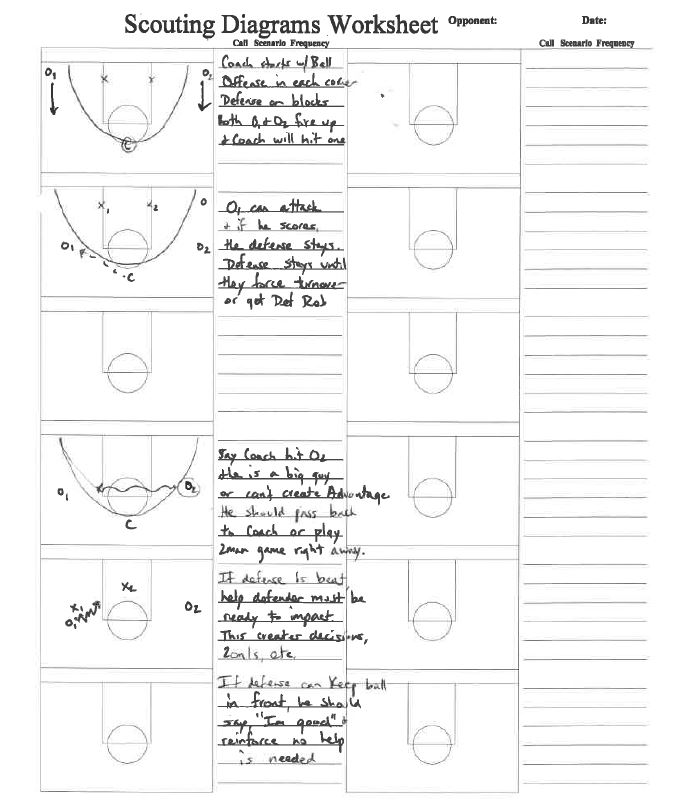 Scouting Diagrams Worksheet Opponent: Date:
Call Scenario Frequency
Call Scenario Frequency
O1 x x O2
C
Coach starts w/ Ball
Offense in each corner
Defense on blocks
Both O1 + O2 fire up
+ Coach will hit one
x1 x2 O
O1 O2
C
O1 can attack
+ if he scores,
the defense stays.
Defense stays until
they force turnover
or get Def Reb
O1 x O2
C
Say Coach hit O2
He is a big guy
or can't create Advantage
He should pass back
to Coach or play
2man game right away.
x2
x1
O1 O2
If defense is beat,
help defender must be
ready to impact
This creates decisions,
2on1s, etc.
If defense can keep ball
in front, he should
say, "I'm good" +
reinforce no help
is needed